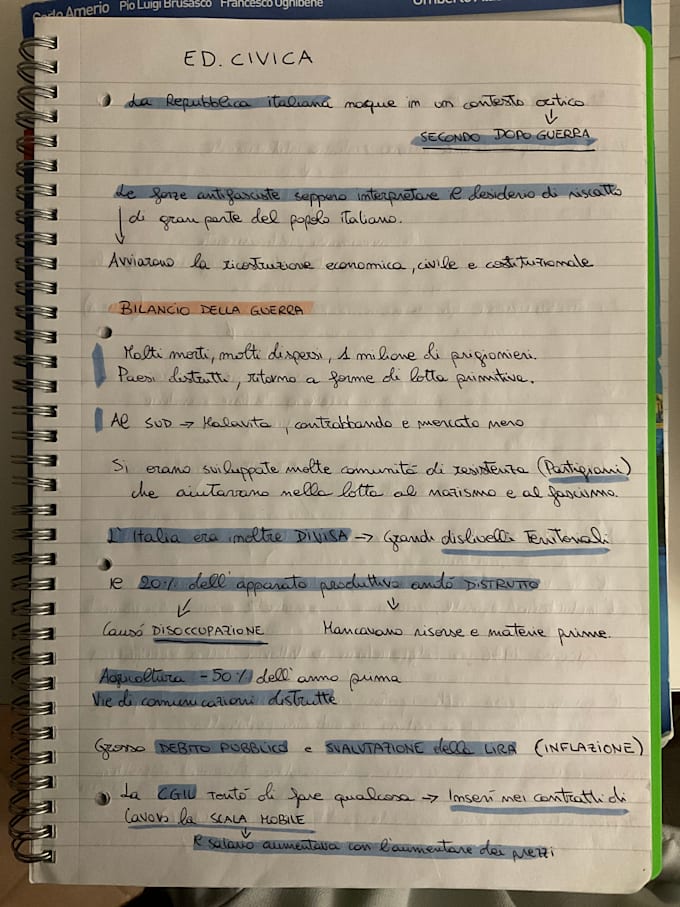 Carlo Amerio Pio Luigi Brusasco Francesco Ughibene Umberto
ED. CIVICA
La Repubblica italiana nacque in un contesto critico
↓
SECONDO DOPO GUERRA
Le forze antifasciste seppero interpretare il desiderio di riscatto
di gran parte del popolo italiano.
↓
Avviarono la ricostruzione economica, civile e costituzionale
BILANCIO DELLA GUERRA
Molti morti, molti dispersi, 1 milione di prigionieri.
Paesi distrutti, ritorno a forme di lotta primitive.
Al SUD → Malavita, contrabbando e mercato nero
Si erano sviluppate molte comunitá di resistenza (Partigiani)
che aiutavano nella lotta al nazismo e al fascismo.
L'Italia era inoltre DIVISA → Grandi dislivelli Territoriali
Il 20% dell'apparato produttivo andó DISTRUTTO
↓ ↓
Causó DISOCCUPAZIONE Mancavano risorse e materie prime.
Agricoltura -50% dell'anno prima
Vie di comunicazioni distrutte
Grosso DEBITO PUBBLICO e SVALUTAZIONE della LIRA (INFLAZIONE)
La CGIL tentó di fare qualcosa → Inserí nei contratti di
lavoro la SCALA MOBILE
↓
Il salario aumentava con l'aumentare dei prezzi